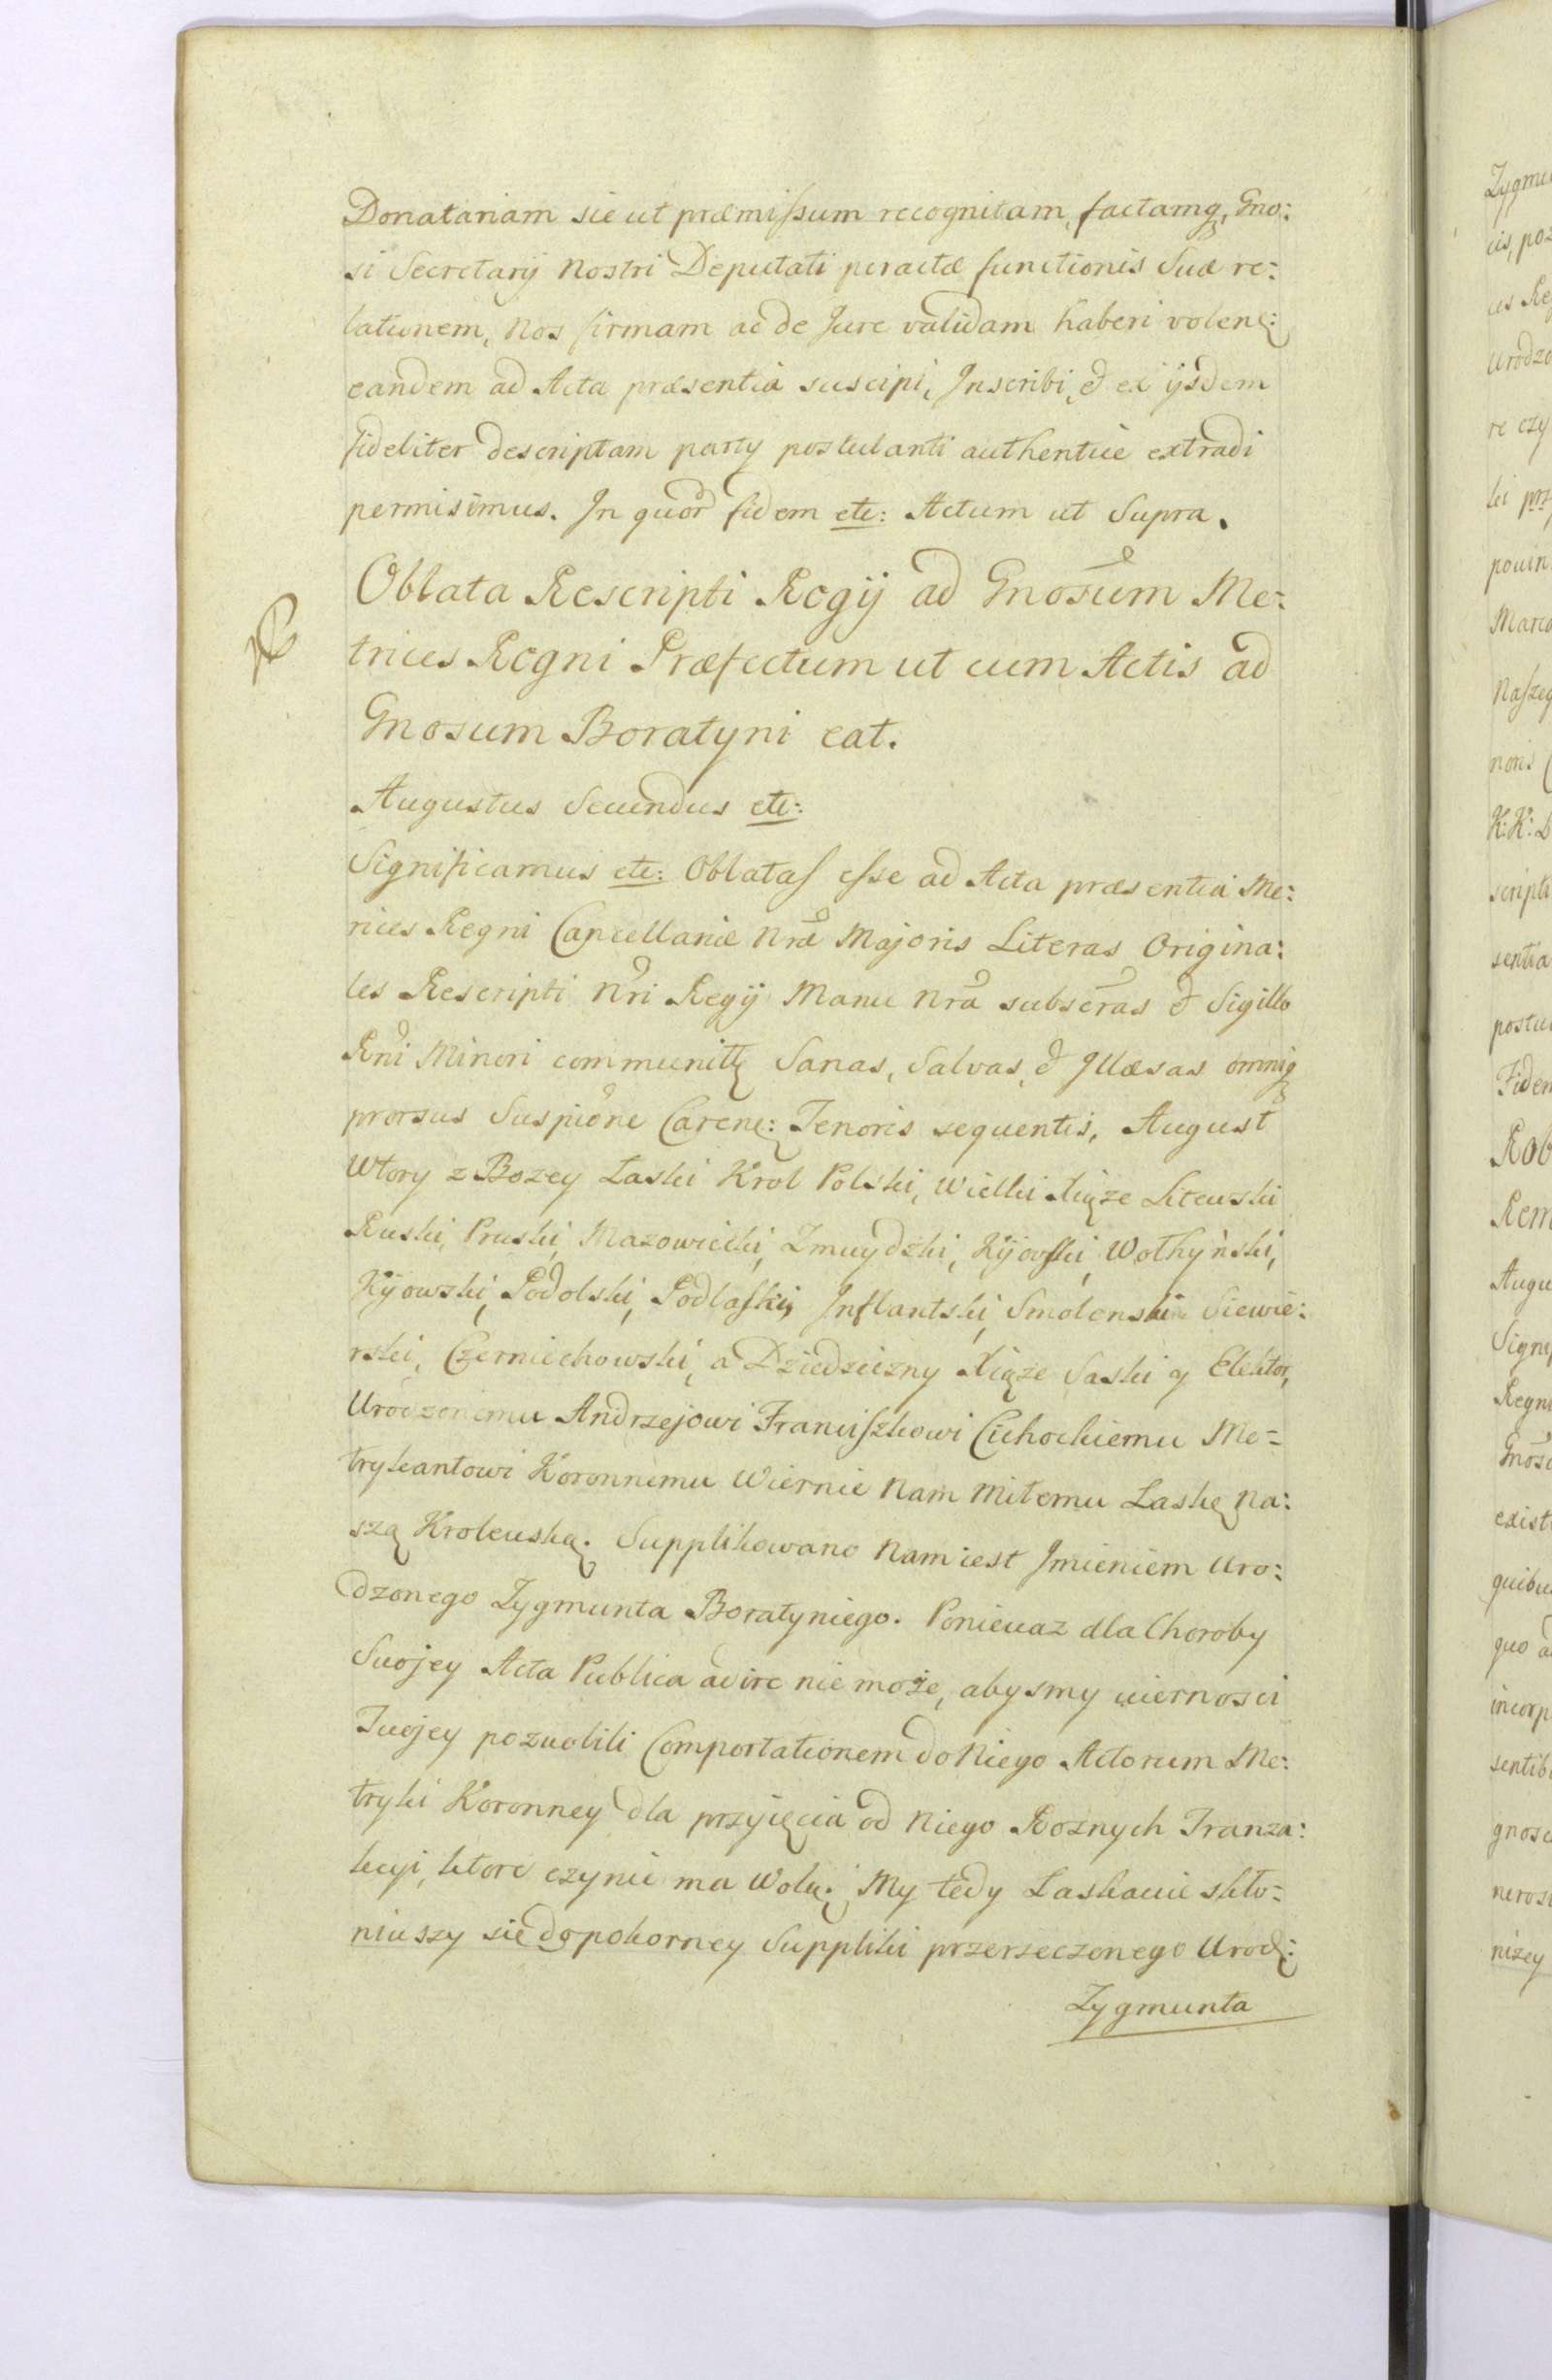 Donatariam sic ut præmissum recognitam, factamq, Gno:
si Secretarij Nostri Deputati peractæ functionis Suæ re:
lationem, Nos firmam ac de Jure validam haberi volen:
eandem ad Acta præsentia suscipi, Inscribi, & ex ijsdem
fideliter descriptam party postulanti authentice extradi
permisimus. In quor fidem etc: Actum ut Supra.
Oblata Rescripti Regij ad Gnosum Me:
trices Regni Præfectum ut cum Actis ad
Gnosum Boratyni eat.
Augustus Secundus etc:
Significamus etc: Oblatas esse ad Acta præsentia Me:
rices Regni Cancellariæ Nræ Majoris Literas Origina:
les Rescripti Nri Regij Manu Nra subscras & Sigillo
Rni Minori communit Sanas, Salvas, & Illæsas omniq
prorsus Suspione Caren: Tenoris sequentis, August
Wtory z Bozey Łaski Krol Polski, Wielki Xiąze Litewski
Ruski, Pruski, Mazowiecki, Zmuydzki, Kijowski, Wołhyński,
Kijowski, Podolski, Podlaski, Inflantski, Smolenski Siewie:
rski, Czerniechowski, a Dziedziczny Xiąze Saski y Elektor,
Urodzonemu Andrzejowi Franciszkowi Cichockiemu Me=
trykantowi Koronnemu Wiernie Nam Miłemu Łaskę Na:
szą Krolewską. Supplikowano Nam iest Imieniem Uro:
dzonego Zygmunta Boratyniego. Poniewaz dla Choroby
Swojey Acta Publica adire nie może, abysmy wiernosci
Twojey pozwolili Comportationem do Niego Actorum Me:
tryki Koronney dla przyięcia od Niego Roznych Tranza:
kcyi, ktore czynic ma Wolą. My tedy Łaskawie skło=
niwszy się do pokorney Suppliki przerzeczonego Urodz:
Zygmunta
Zygmu
cis, poz
Urodzo
re czy
ki prz
powin
Naszeg
noris
K: K: L
scripti
sentia
postul
Fidem
Rob
Rem
Augu
Signi
Regni
exist
quibu
quo a
incorp
sentib
nizey